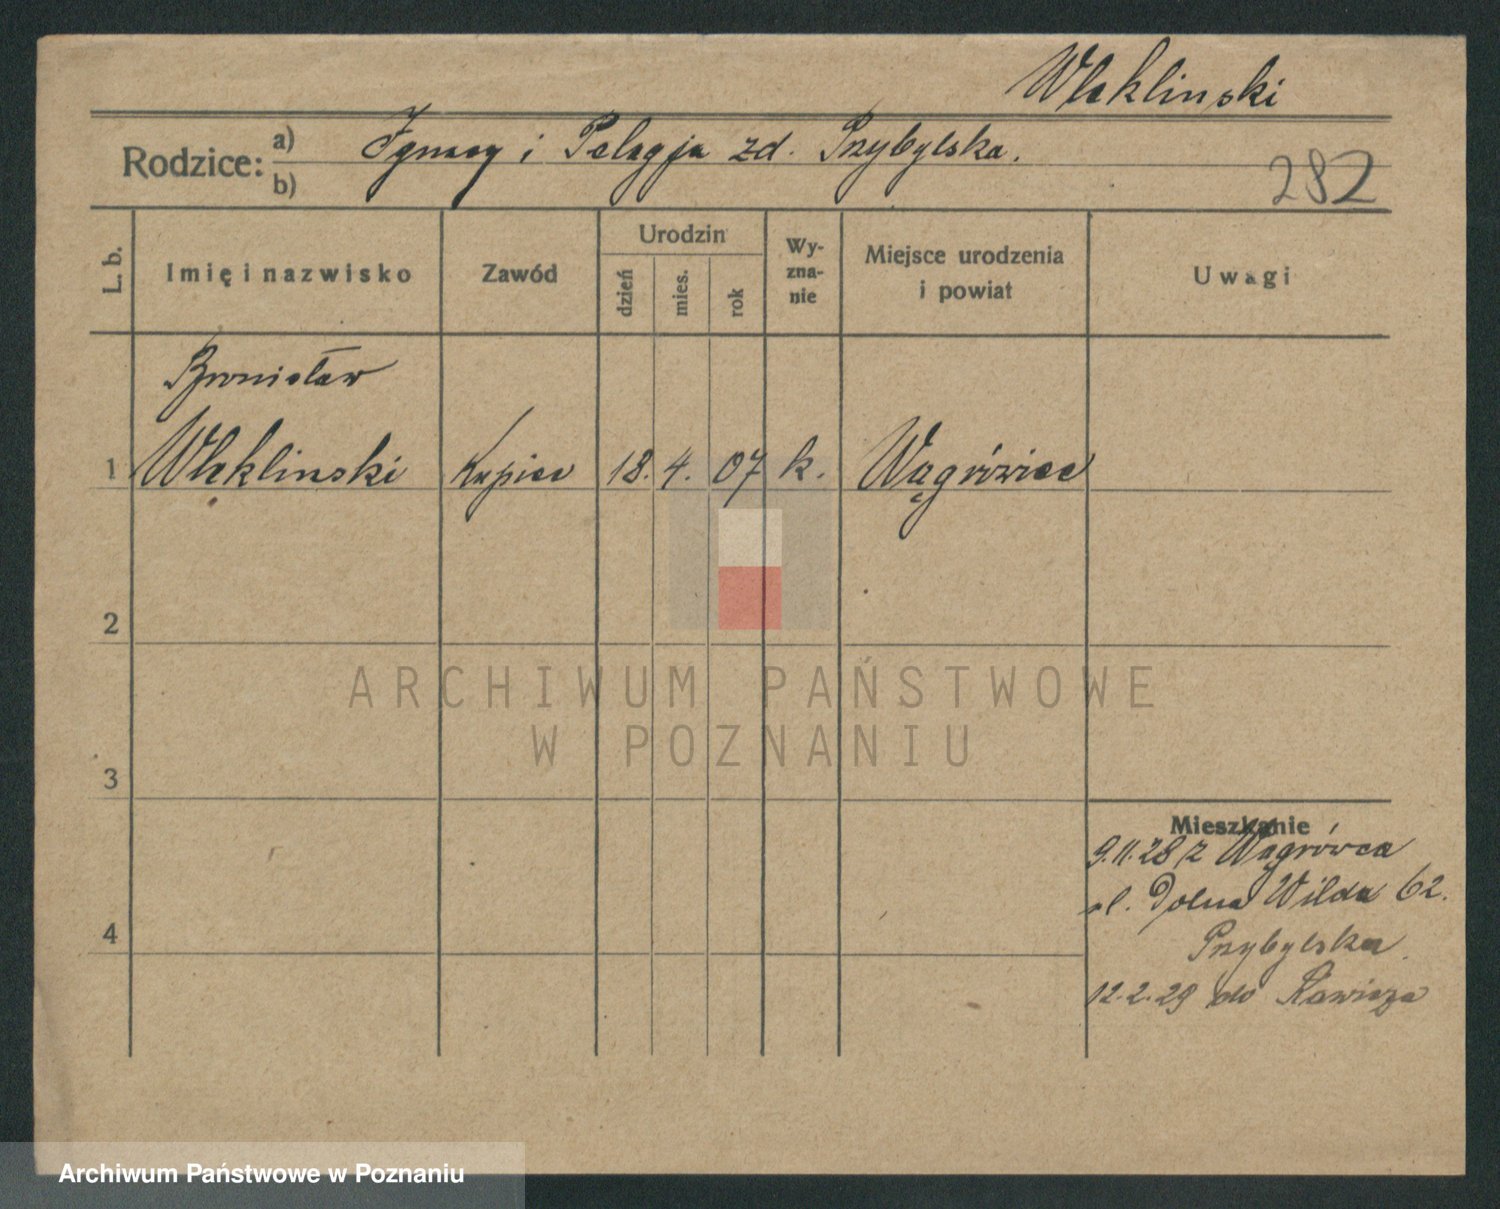 Wleklinski
Rodzice: a) Ignacy i Pelagja zd. Przybylska.
b)
282
L. b.
Imię i nazwisko
Zawód
Urodzin
dzień
mies.
rok
Wy-
zna-
nie
Miejsce urodzenia
i powiat
Uwagi
Bronisław
1 Wleklinski Kupiec 18. 4. 07 k. Wągrówiec
2
ARCHIWUM PAŃSTWOWE
W POZNANIU
3
Mieszkanie
9.11.28 z Wągrówca
ul. Dolna Wilda 62.
4
Przybylska.
12.2.29 do Rawicza
Archiwum Państwowe w Poznaniu